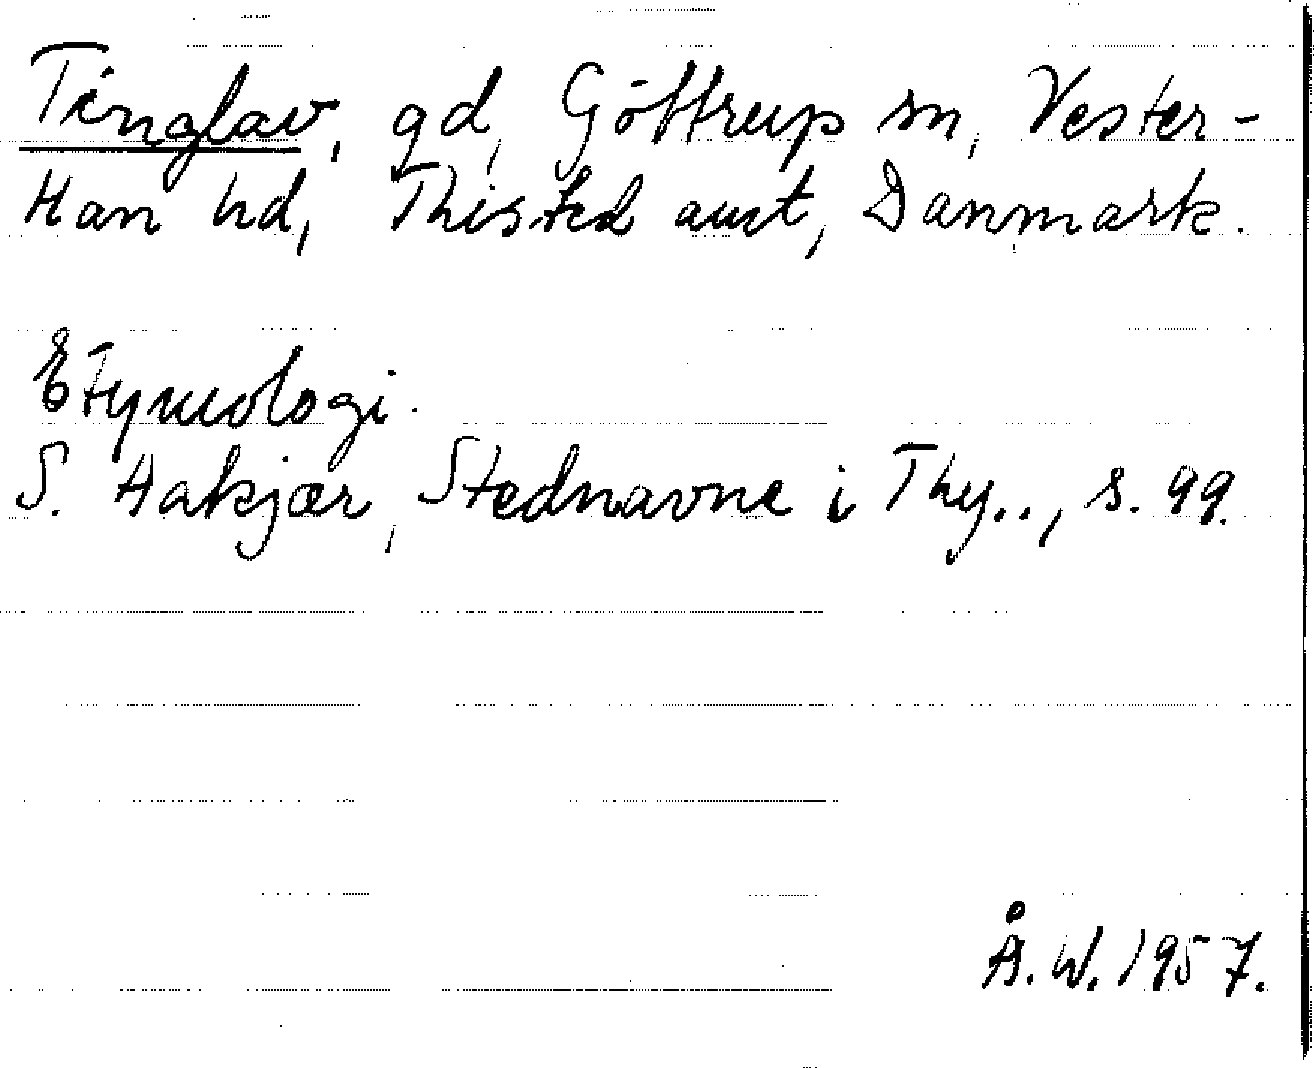 Tinglav, gd, Göttrup sn, Vester-
Han hd, Thisted amt, Danmark.
Etymologi.
S. Hakjær, Stednavne i Thy.., s. 99.
Å.W. 1957.